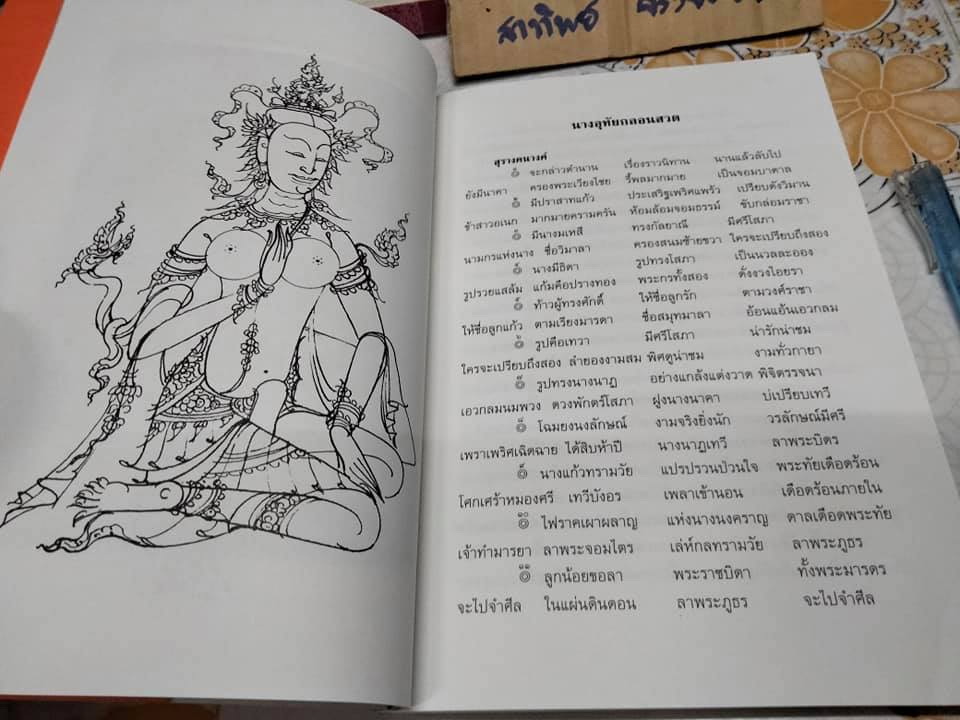 สาทิพย์
นางอุทัยกลอนสวด
สุรางคนางค์
๏ จะกล่าวตำนาน เรื่องราวนิทาน นานแล้วลับไป
ยังมีนาคา ครองพระเวียงไชย รี้พลมากมาย เป็นจอมบาดาล
๏ มีปราสาทแก้ว ประเสริฐเพริศแพร้ว เปรียบดังวิมาน
ช้าสาวอเนก มากมายครามครัน ห้อมล้อมจอมธรรม์ ขับกล่อมราชา
๏ มีนางมเหสี ทรงกัลยาณี มีศรีโสภา
นามกรแห่งนาง ชื่อวิมาลา ครองสนมซ้ายขวา ใครจะเปรียบถึงสอง
๏ นางมีธิดา รูปทรงโสภา เป็นนวลละออง
รูปรวยแสล้ม แก้มคือปรางทอง พระกรทั้งสอง ดั่งงวงไอยรา
๏ ท้าวผู้ทรงศักดิ์ ให้ชื่อลูกรัก ตามวงศ์ราชา
ให้ชื่อลูกแก้ว ตามเรียงมารดา ชื่อสมุทมาลา อ้อนแอ้นเอวกลม
๏ รูปคือเทวา มีศรีโสภา น่ารักน่าชม
ใครจะเปรียบถึงสอง ลำยองงามสม พิศดูน่าชม งามทั่วกายา
๏ รูปทรงนางนาฏ อย่างแกล้งแต่งวาด พิจิตรรจนา
เอวกลมนมพวง ดวงพักตร์โสภา ฝูงนางนาคา บ่เปรียบเทวี
๏ โฉมยงนงลักษณ์ งามจริงยิ่งนัก วรลักษณ์มีศรี
เพราเพริศเฉิดฉาย ได้สิบห้าปี นางนาฏเทวี ลาพระบิตร
๏ นางแก้วทรามวัย แปรปรวนป่วนใจ พระทัยเดือดร้อน
โศกเศร้าหมองศรี เทวีบังอร เพลาเข้านอน เดือดร้อนภายใน
๏ ไฟราคเผาผลาญ แห่งนางนงคราญ ดาลเดือดพระทัย
เจ้าทำมารยา ลาพระจอมไตร เล่ห์กลทรามวัย ลาพระภูธร
๏ ลูกน้อยขอลา พระราชบิดา ทั้งพระมารดร
จะไปจำศีล ในแผ่นดินดอน ลาพระภูธร จะไปจำศีล